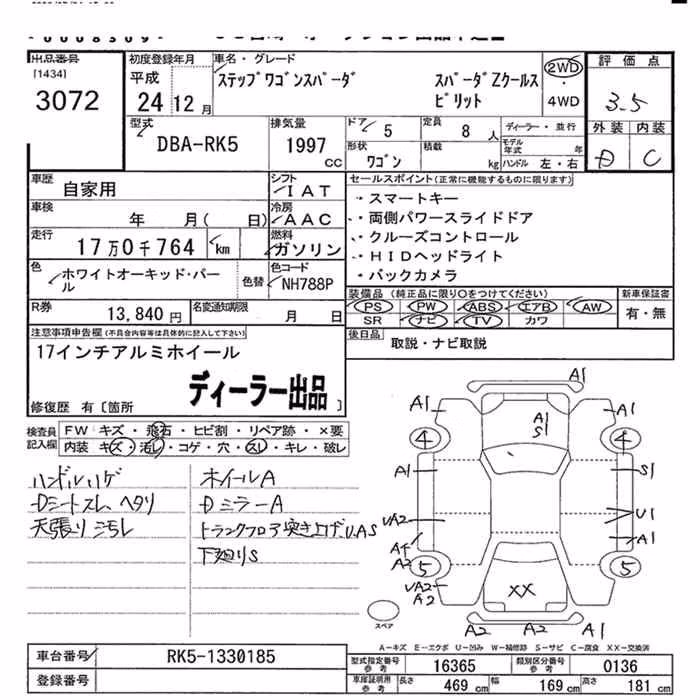 出品番号
[1434]
3072
初度登録年月
平成
24 12 月
車名・グレード
ステップワゴンスパーダ スパーダZクールス
ピリット
2WD
・
4WD
評価点
3.5
外装 内装
D C
型式
DBA-RK5
排気量
1997
cc
ドア 5
定員 8 人
ディーラー・並行
形状
ワゴン
積載 kg
モデル年式 年
ハンドル 左・右
車歴
自家用
シフト
IAT
車検
年 月( 日)
冷房
AAC
走行
17万0千764 km
燃料
ガソリン
色
ホワイトオーキッド・パール
色替
色コード
NH788P
R券
13,840 円
名変通知期限
月 日
セールスポイント(正常に機能するものに限ります)
・スマートキー
・両側パワースライドドア
・クルーズコントロール
・HIDヘッドライト
・バックカメラ
装備品 (純正品に限り○をつけてください)
PS PW ABS エアB AW
SR ナビ TV カワ
新車保証書
有・無
後日品
取説・ナビ取説
注意事項申告欄(不具合内容等は具体的に記入して下さい)
17インチアルミホイール
ディーラー出品
修復歴 有〔箇所 〕
検査員
記入欄
FW キズ・飛石・ヒビ割・リペア跡・×要
内装 キズ・汚レ・コゲ・穴・スレ・キレ・破レ
ハンドルハゲ
Dシートスレ、ヘタリ
天張り汚レ
ホイールA
DミラーA
トランクフロア突き上げU.AS
下廻りS
A1
A1
A1
A
S1
4
4
A1
S1
UA2
U1
A4
A2
A1
5
5
UA2
A2
XX
A2
A2
A1
スペア
A-キズ E-エクボ U-凹み W-補修跡 S-サビ C-腐食 XX-交換済
車台番号
RK5-1330185
登録番号
型式指定番号
参考
16365
類別区分番号
参考
0136
車庫証明用
参考
長さ 469 cm
幅 169 cm
高さ 181 cm